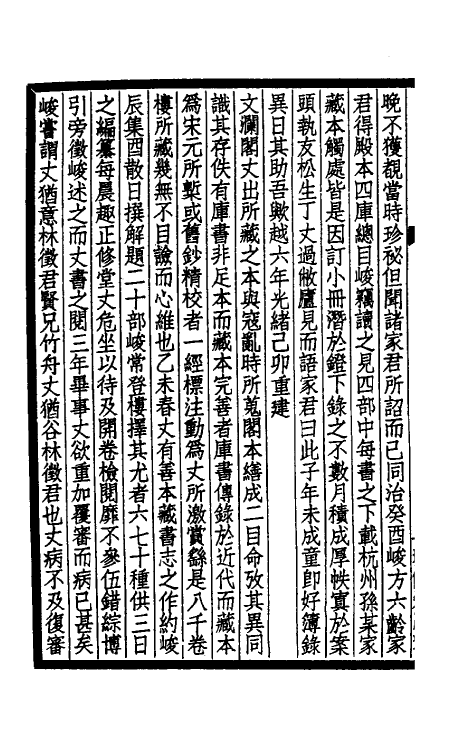 晚不獲覩當時珍祕但聞諸家君所詔而已同治癸酉峻方六齡家
君得殿本四庫總目峻竊讀之見四部中每書之下載杭州孫某家
藏本觸處皆是因訂小冊潛於鐙下錄之不數月積成厚帙寘於案
頭執友松生丁丈過敝廬見而語家君曰此子年未成童卽好簿錄
異日其助吾歟越六年光緒己卯重建
文瀾閣丈出所藏之本與寇亂時所蒐閣本繕成二目命攷其異同
識其存佚有庫書非足本而藏本完善者庫書傳錄於近代而藏本
爲宋元所槧或舊鈔精校者一經標注動爲丈所激賞繇是八千卷
樓所藏幾無不目譣而心維也乙未春丈有善本藏書志之作約峻
辰集酉散日撰解題二十部峻常登樓擇其尤者六七十種供三日
之編纂每晨趣正修堂丈危坐以待及開卷檢閱靡不參伍錯綜博
引旁徵峻述之而丈書之閱三年畢事丈欲重加覆審而病已甚矣
峻嘗謂丈猶意林徵君賢兄竹舟丈猶谷林徵君也丈病不及復審